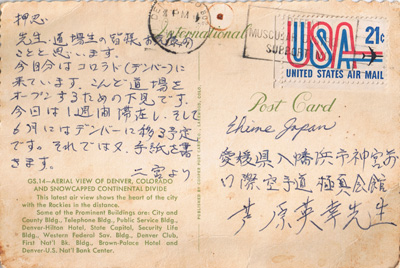 押忍
先生、道場生の皆様、お元気の
ことと思います。
今自分はコロラド(デンバー)に
来ています。こんど道場を
オープンするための下見です。
今回は1週間滞在し、そして
6月にはデンバーに移る予定
です。それでは又、手紙を書
きます。
二宮より
GS.14—AERIAL VIEW OF DENVER, COLORADO
AND SNOWCAPPED CONTINENTAL DIVIDE
This latest air view shows the heart of the city
with the Rockies in the distance.
Some of the Prominent Buildings are: City and
County Bldg., Telephone Bldg., Public Service Bldg.,
Denver-Hilton Hotel, State Capitol, Security Life
Bldg., Western Federal Sav. Bldg., Denver Club,
First Nat'l Bk. Bldg., Brown-Palace Hotel and
Denver-U.S. Nat'l Bank Center.
PM
MUSCULAR
SUPPORT
USA
21c
UNITED STATES AIR MAIL
Post Card
Ehime Japan
愛媛県八幡浜市神宮前
国際空手道 極真会館
芦原英幸先生